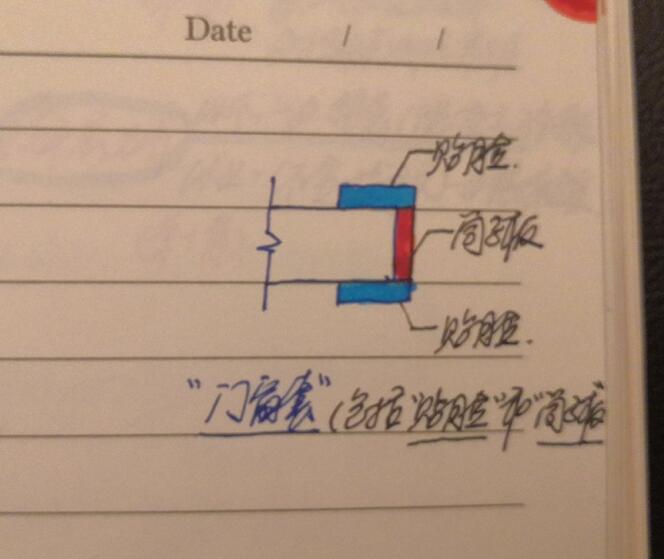 Date / /
贴脸.
筒子板
贴脸.
“门窗套”（包括“贴脸”和“筒子板